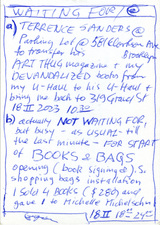 WAITING FOR/@
a) TERRENCE SANDERS @
Parking Lot @ 581 Ave
to transfer his Brooklyn
ART THUG magazine + my
DEVANDALIZED books from
my U-Haul to his U-Haul +
bring me back to 319 Grand St
18 II 2013 10:30
b) actually NOT WAITING FOR,
but busy - as USUAL - till
the last minute - FOR START
of BOOKS & BAGS
opening (book signing d) S.
shopping bags installation
I sold 4 BOOKS ($280) and
gave 1 to Michelle
18 II 18